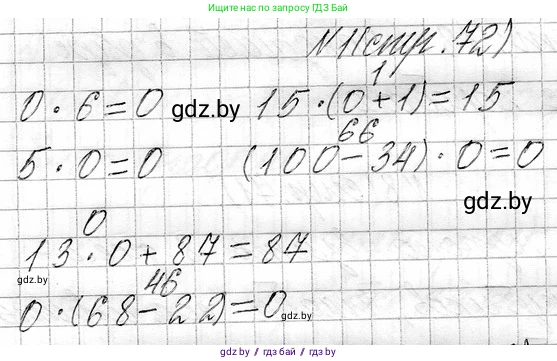 Ищите нас по запросу ГДЗ Бай
№1(стр.72)
0 · 6 = 0
gdz.by
1
15 · (0 + 1) = 15
5 · 0 = 0
66
(100 - 34) · 0 = 0
gdz.by
0
13 · 0 + 87 = 87
gdz.by
46
0 · (68 - 22) = 0
gdz.by
gdz.by / гдз бай / гдз.by